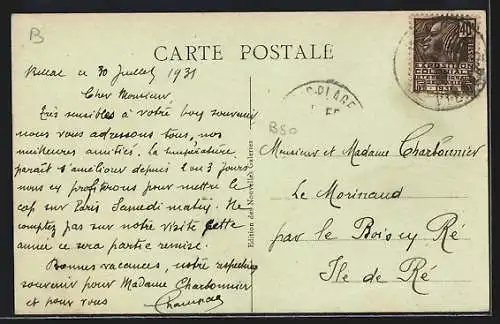 B
CARTE POSTALE
Bellac ce 30 Juillet 1931
Cher Monsieur
Très sensibles à votre bon souvenir
nous vous adressons tous, nos
meilleures amitiés. La température
paraît s'améliorer depuis 2 ou 3 jours
nous en profiterons pour mettre le
cap sur Paris Samedi matin. Ne
comptez pas sur notre visite cette
année ce sera partie remise.
Bonnes vacances, notre respectueux
souvenir pour Madame Charbonnier
et pour vous
Edition des Nouvelles Galeries
B50
Monsieur et Madame Charbonnier
Le Morinaud
par le Bois cy Ré
Ile de Ré
EXPOSITION
COLONIALE
INTERNATIONALE
PARIS 1931